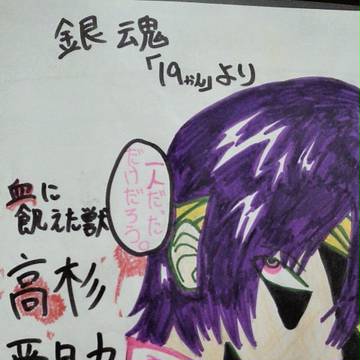 銀魂
「19かん」より
一人だった
だけだろう。
血に
飢えた獣
高杉